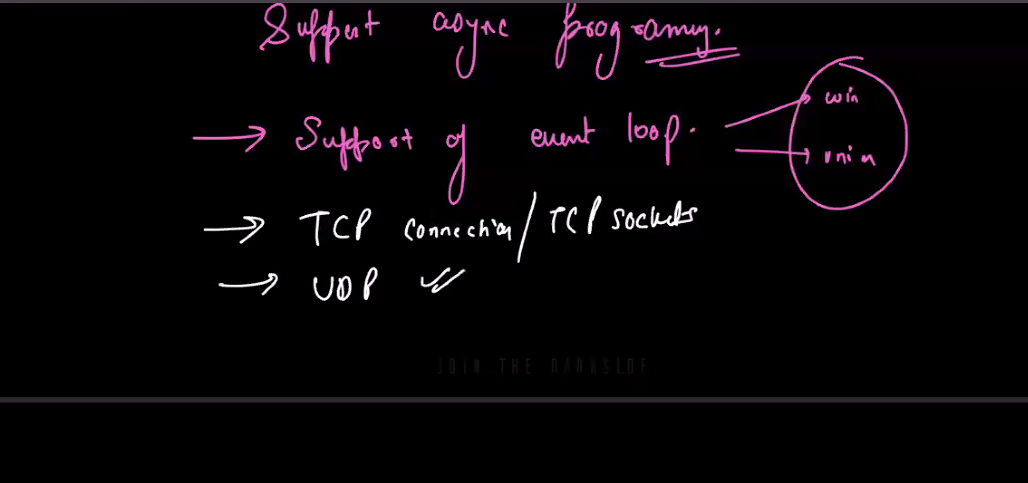 Support async programing.
→ Support of event loop. → win
→ unix
→ TCP connection / TCP sockets
→ UDP
JOIN THE DARKSIDE